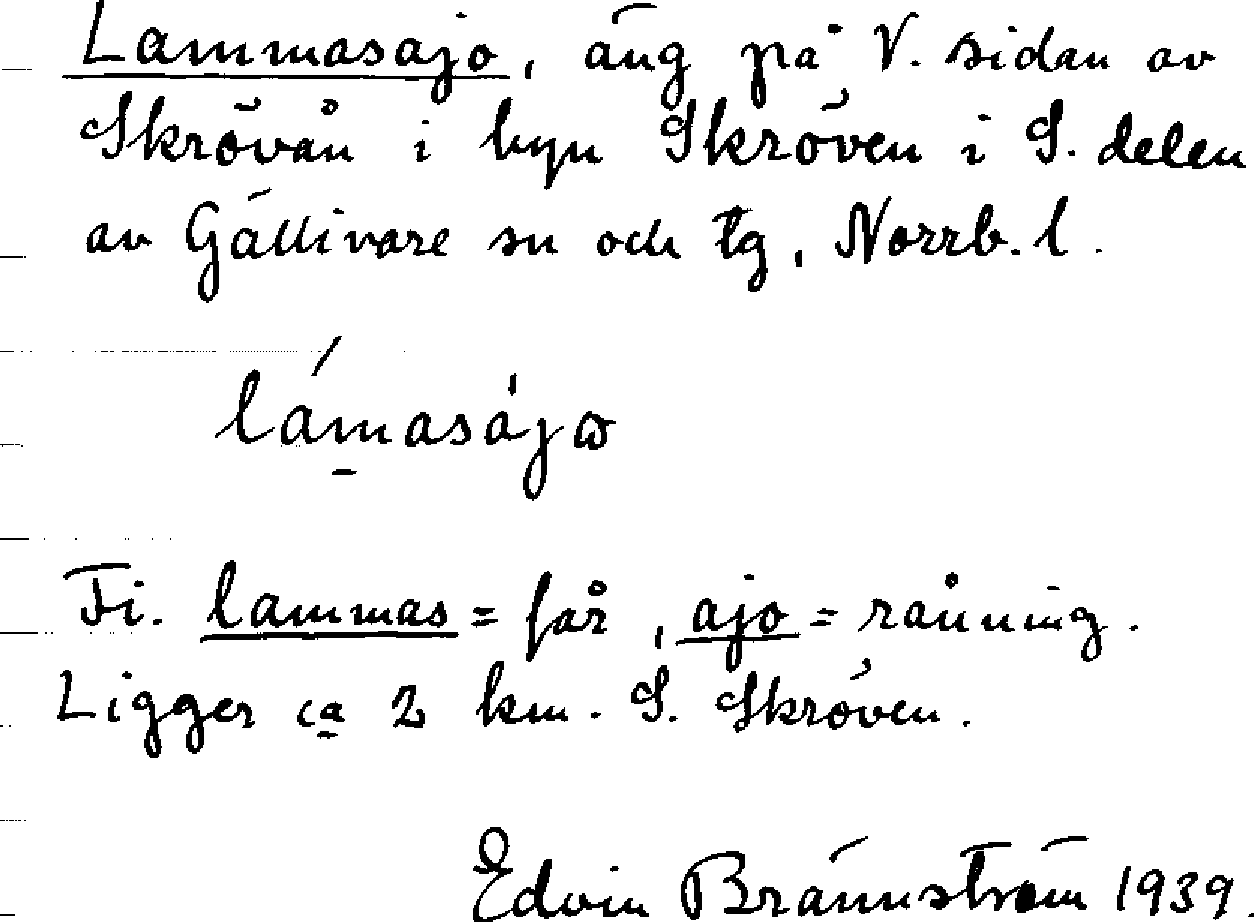 Lammasajo, äng på V. sidan av
Skrövån i byn Skröven i S. delen
av Gällivare sn och tg, Norrb. l.
lám̱asàjω
Fi. lammas = får, ajo = råning.
Ligger ca 2 km. S. Skröven.
Edvin Brännström 1939